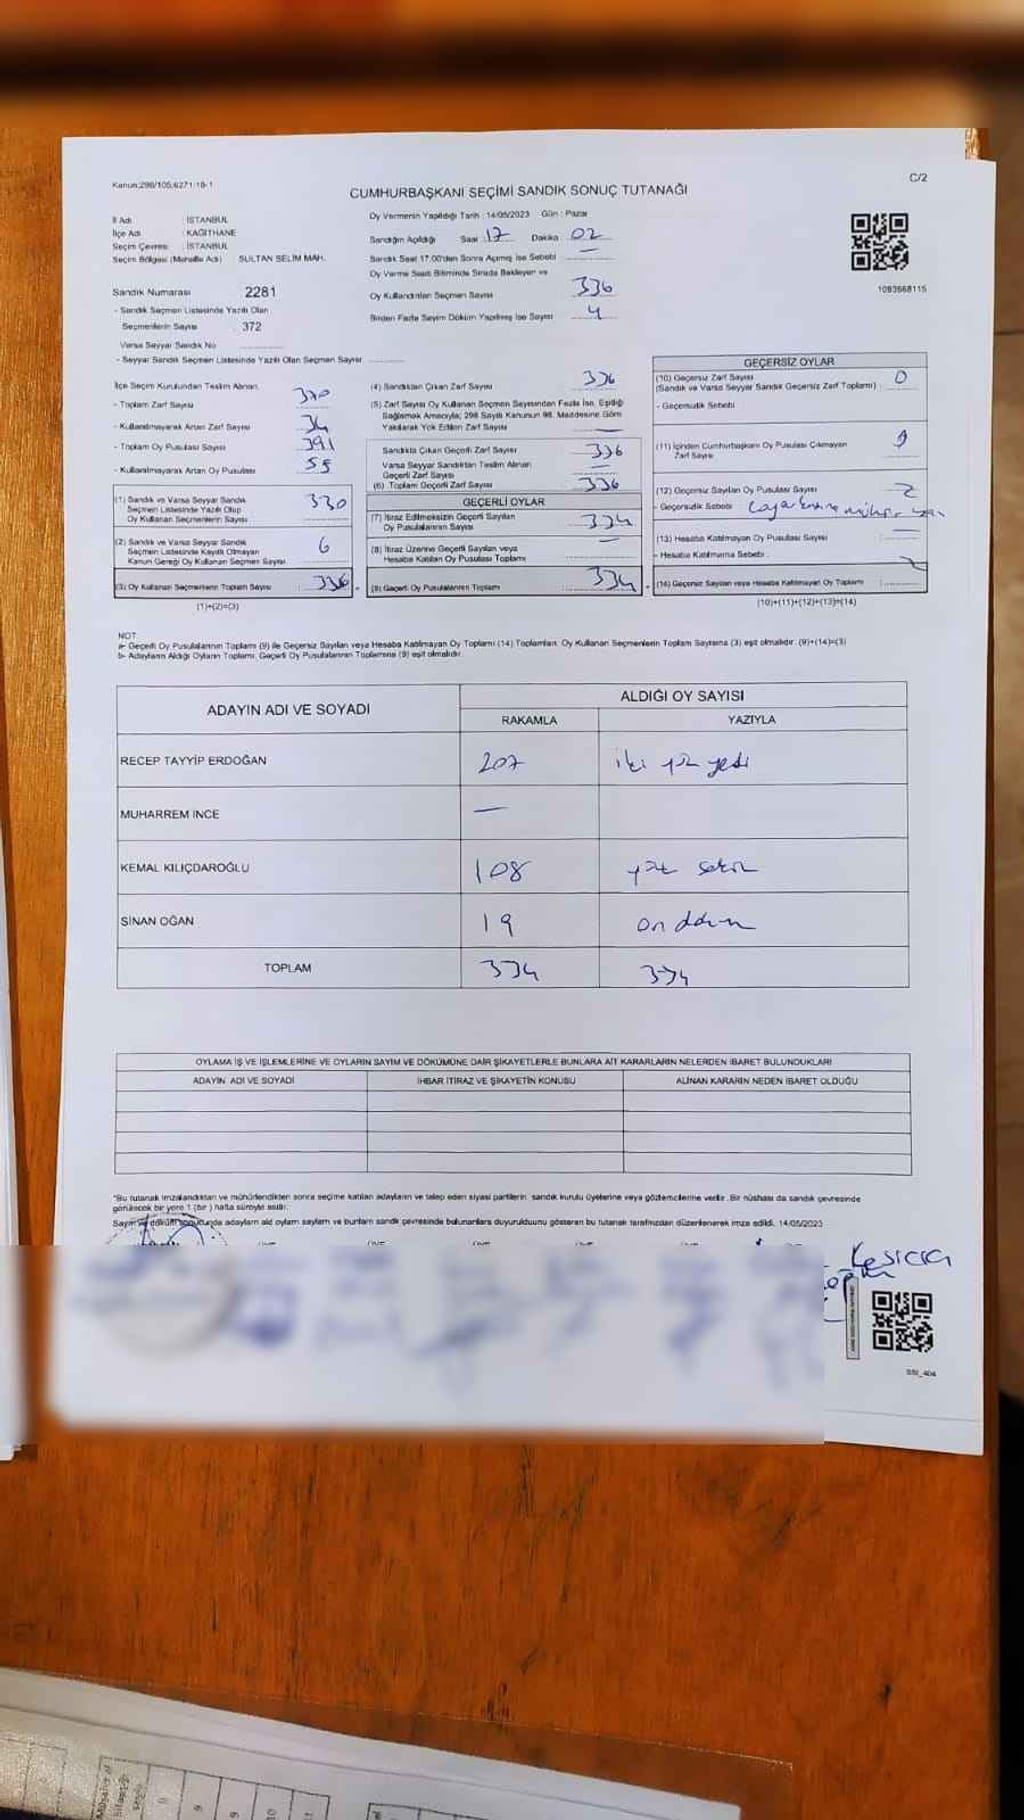 Kanun:298/105;6271/18-1
C/2
CUMHURBAŞKANI SEÇİMİ SANDIK SONUÇ TUTANAĞI
İl Adı : İSTANBUL
İlçe Adı : KAĞITHANE
Seçim Çevresi : İSTANBUL
Seçim Bölgesi (Mahalle Adı) SULTAN SELİM MAH.
Sandık Numarası 2281
- Sandık Seçmen Listesinde Yazılı Olan
Seçmenlerin Sayısı 372
Varsa Seyyar Sandık No
- Seyyar Sandık Seçmen Listesinde Yazılı Olan Seçmen Sayısı
Oy Vermenin Yapıldığı Tarih : 14/05/2023 Gün : Pazar
Sandığın Açıldığı Saat 17 Dakika 02
Sandık Saat 17:00'den Sonra Açılmış İse Sebebi
Oy Verme Saati Bitiminde Sırada Bekleyen ve
Oy Kullandırılan Seçmen Sayısı 336
Birden Fazla Sayım Döküm Yapılmış İse Sayısı 4
1093668115
İlçe Seçim Kurulundan Teslim Alınan;
- Toplam Zarf Sayısı 370
- Kullanılmayarak Artan Zarf Sayısı 34
- Toplam Oy Pusulası Sayısı 391
- Kullanılmayarak Artan Oy Pusulası 55
(1) Sandık ve Varsa Seyyar Sandık
Seçmen Listesinde Yazılı Olup
Oy Kullanan Seçmenlerin Sayısı 330
(2) Sandık ve Varsa Seyyar Sandık
Seçmen Listesinde Kayıtlı Olmayan
Kanun Gereği Oy Kullanan Seçmen Sayısı 6
(3) Oy Kullanan Seçmenlerin Toplam Sayısı 336
(1)+(2)=(3)
(4) Sandıktan Çıkan Zarf Sayısı 336
(5) Zarf Sayısı Oy Kullanan Seçmen Sayısından Fazla İse, Eşitliği
Sağlamak Amacıyla; 298 Sayılı Kanunun 98. Maddesine Göre
Yakılarak Yok Edilen Zarf Sayısı —
Sandıkta Çıkan Geçerli Zarf Sayısı 336
Varsa Seyyar Sandıktan Teslim Alınan
Geçerli Zarf Sayısı —
(6) Toplam Geçerli Zarf Sayısı 336
GEÇERLİ OYLAR
(7) İtiraz Edilmeksizin Geçerli Sayılan
Oy Pusulalarının Sayısı 334
(8) İtiraz Üzerine Geçerli Sayılan veya
Hesaba Katılan Oy Pusulası Toplamı —
(9) Geçerli Oy Pusulalarının Toplamı 334
GEÇERSİZ OYLAR
(10) Geçersiz Zarf Sayısı
(Sandık ve Varsa Seyyar Sandık Geçersiz Zarf Toplamı) 0
- Geçersizlik Sebebi
(11) İçinden Cumhurbaşkanı Oy Pusulası Çıkmayan
Zarf Sayısı
(12) Geçersiz Sayılan Oy Pusulası Sayısı 2
- Geçersizlik Sebebi
(13) Hesaba Katılmayan Oy Pusulası Sayısı —
- Hesaba Katılmama Sebebi
(14) Geçersiz Sayılan veya Hesaba Katılmayan Oy Toplamı 2
(10)+(11)+(12)+(13)=(14)
NOT:
a- Geçerli Oy Pusulalarının Toplamı (9) ile Geçersiz Sayılan veya Hesaba Katılmayan Oy Toplamı (14) Toplamları, Oy Kullanan Seçmenlerin Toplam Sayısına (3) eşit olmalıdır. (9)+(14)=(3)
b- Adayların Aldığı Oyların Toplamı, Geçerli Oy Pusulalarının Toplamına (9) eşit olmalıdır.
ADAYIN ADI VE SOYADI ALDIĞI OY SAYISI
RAKAMLA YAZIYLA
RECEP TAYYİP ERDOĞAN 207 iki yüz yedi
MUHARREM İNCE —
KEMAL KILIÇDAROĞLU 108 yüz sekiz
SİNAN OĞAN 19 on dokuz
TOPLAM 334 334
OYLAMA İŞ VE İŞLEMLERİNE VE OYLARIN SAYIM VE DÖKÜMÜNE DAİR ŞİKAYETLERLE BUNLARA AİT KARARLARIN NELERDEN İBARET BULUNDUKLARI
ADAYIN ADI VE SOYADI İHBAR İTİRAZ VE ŞİKAYETİN KONUSU ALINAN KARARIN NEDEN İBARET OLDUĞU
*Bu tutanak imzalandıktan ve mühürlendikten sonra seçime katılan adayların ve talep eden siyasi partilerin, sandık kurulu üyelerine veya gözlemcilerine verilir. Bir nüshası da sandık çevresinde
görülecek bir yere 1 (bir) hafta süreyle asılır.
Sayım ve döküm sonucunda adayların aldı oyların sayıları ve bunların sandık çevresinde bulunanlara duyurulduunu gösteren bu tutanak tarafımızdan düzenlenerek imza edildi. 14/05/2023
Kesici